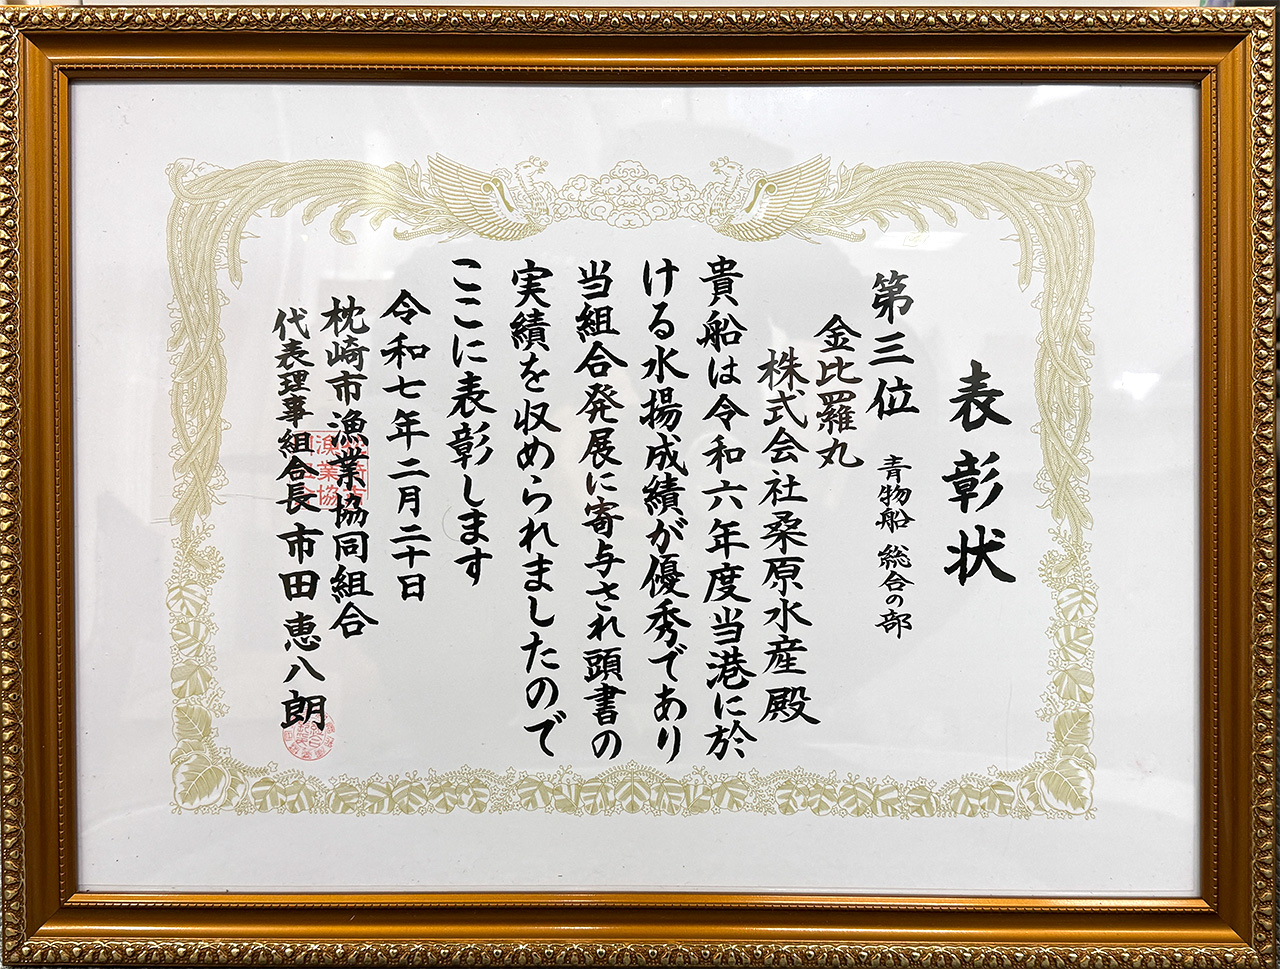 表彰状
第三位 青物船 総合の部
金比羅丸
株式会社桑原水産殿
貴船は令和六年度当港に於
ける水揚成績が優秀であり
当組合発展に寄与され頭書の
実績を収められましたので
ここに表彰します
令和七年二月二十日
枕崎市漁業協同組合
代表理事組合長市田恵八朗